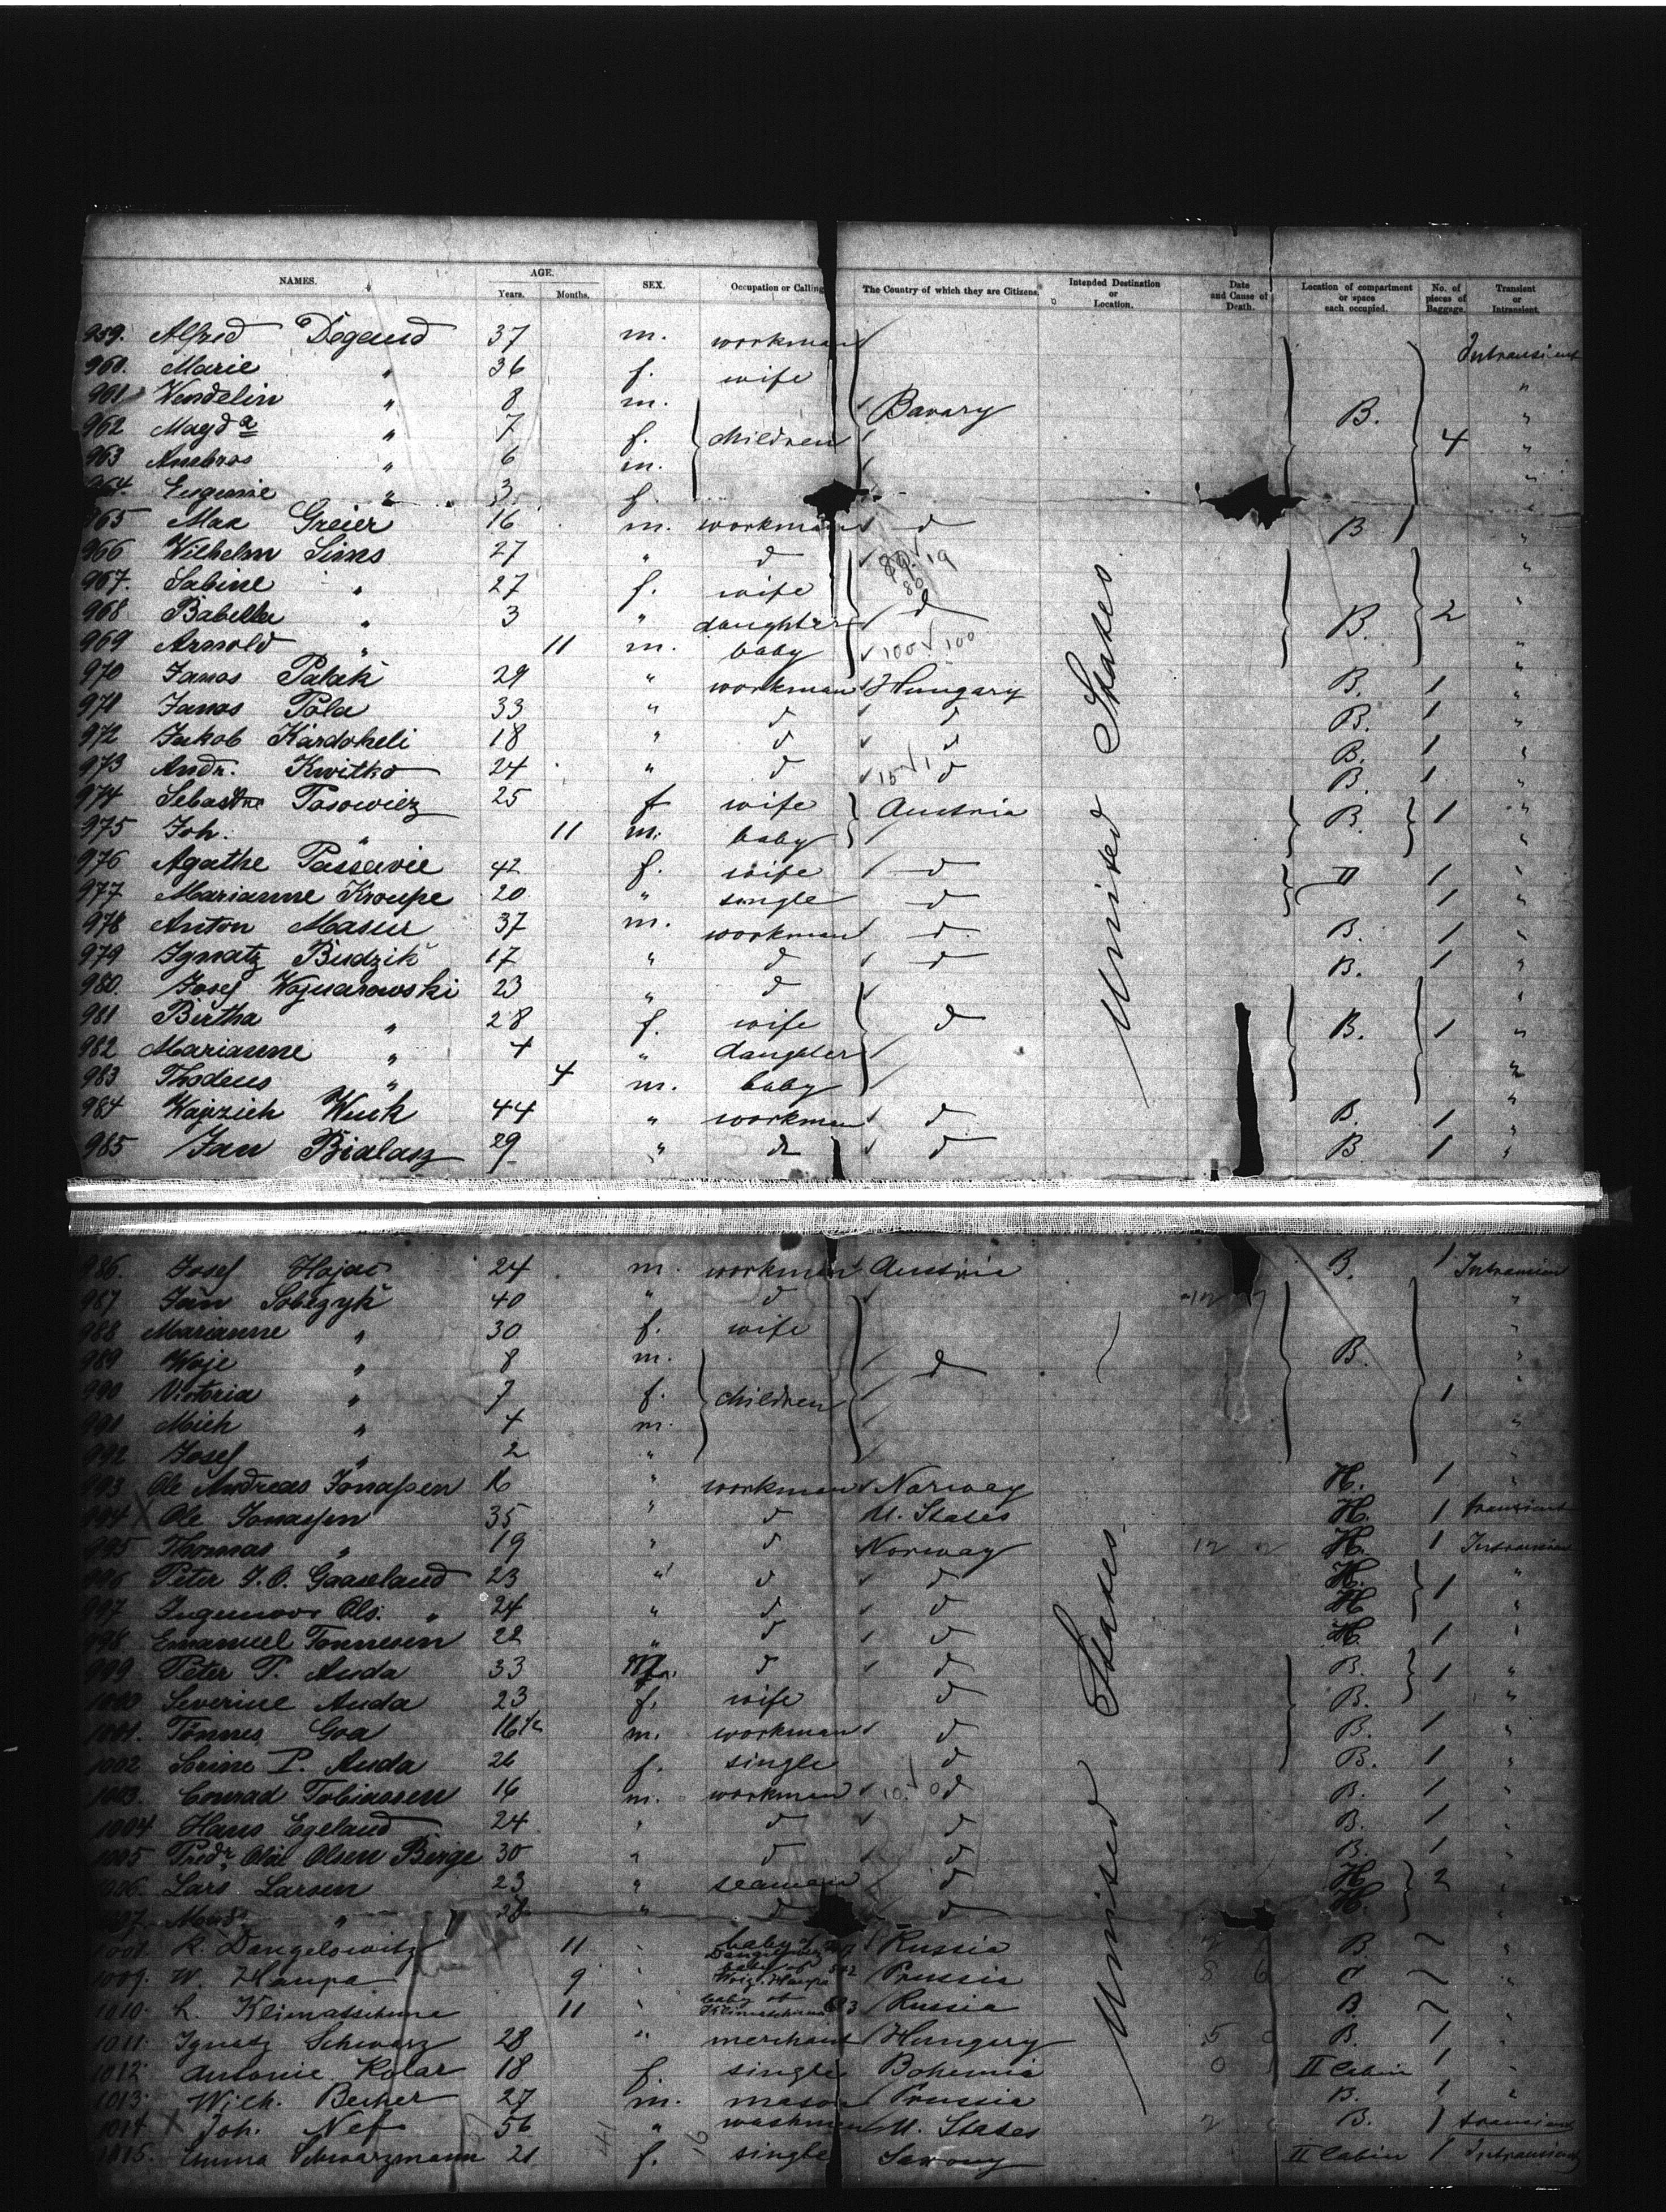 NAMES. AGE. Years. Months. SEX. Occupation or Calling The Country of which they are Citizens. Intended Destination or Location. Date and Cause of Death. Location of compartment or space each occupied. No. of pieces of Baggage. Transient or Intransient.
959. Alfred 37 m. workman Intransient
960. Marie " 36 f. wife "
961 Wendelin " 8 m. Bavary B. "
962 Magda " 7 f. children 4 "
963 " 6 m. "
964. Eugenie " 3 f. "
965 Max Greier 16 m. workman d B 1 "
966 Wilhelm Sims 27 " d "
967. Sabine " 27 f. wife "
968 Babella " 3 " daughter d B. 2
969 Arnold " 11 m. baby "
970 Janos Palak 29 " workman Hungary B. 1 "
971 Janos Pola 33 " d d B. 1 "
972 Jakob Kardoheli 18 " d d B. 1 "
973 Andr. Kwitko 24 " d d B. 1 "
974 Pasowiez 25 f wife Austria B. 1 "
975 Joh. " 11 m. baby "
976 Agathe 42 f. wife d II 1 "
977 Marianne Kroupe 20 " single d 1 "
978 Anton Masur 37 m. workman d B. 1 "
979 Ignatz Budzik 17 " d d B. 1 "
980. Josef 23 " d "
981 Birtha " 28 f. wife d B. 1 "
982 Marianne " 4 " daughter "
983 Thodeus " 4 m. baby "
984 Wojzich Wuk 44 " workman d B. 1 "
985 Jan Bialasz 29 " do d B 1 "
United States
986. Josef Hajac 24 m. workman Austria B. 1 Intransient
987 Jan Sobczyk 40 " d "
988 Marianne " 30 f. wife "
989 Woje " 8 m. d B. "
990 Victoria " 7 f. children 1 "
991 Mich " 4 m. "
992 Josef " 2 " "
993 Ole Andreas Jonassen 16 " workman Norway H. 1 "
994 Ole Jonassen 35 " d U. States H. 1 transient
995 Thomas " 19 " d Norway H. 1 Intransient
996 Peter J. O. Gaaseland 23 " d d H. 1 "
997 Ols. " 24 " d d H "
998 Emanuel Tonnesen 22 " d d H. 1 "
999 Peter P. Auda 33 m. d d B. 1 "
1000 Severine Auda 23 f. wife d B. "
1001. Tönnes Goa 16½ m. workman d B. 1 "
1002 Sorine P. Auda 26 f. single d B. 1 "
1003. Conrad Tobiassen 16 m. workman d B. 1 "
1004 Hans Egeland 24 " d d B. 1 "
1005 Olai Olsen Birge 30 " d d B. 1 "
1006. Lars Larsen 23 " seaman d H 2 "
1007. " 28 " d d H. "
1008. R. Dangelowitz 11 " baby of Russia B. ~ "
1009. W. Haupa 9 " baby of Haupa Prussia C ~ "
1010. L. 11 " baby of Russia B ~ "
1011. Ignatz Schwarz 28 " merchant Hungery B. 1 "
1012. Antonie Kolar 18 f. single Bohemia II Cabin 1 "
1013. Wilh. Becher 27 m. mason Prussia B. 1 "
1014 Joh. Nef 56 " U. States B. 1 transient
1015. Emma Schwarzmann 21 f. single Saxony II Cabin 1 Intransient
United States.